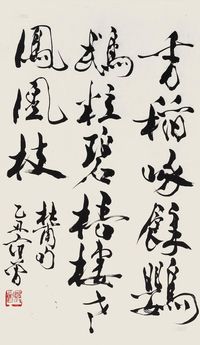 香稻啄餘鸚
鵡粒碧梧棲老
鳳凰枝
杜甫句
乙丑